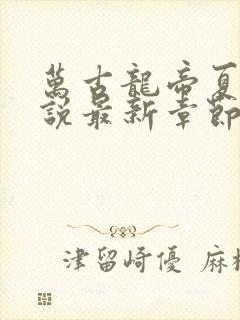 萬古龍帝夏
說最新章節
津留崎優 麻